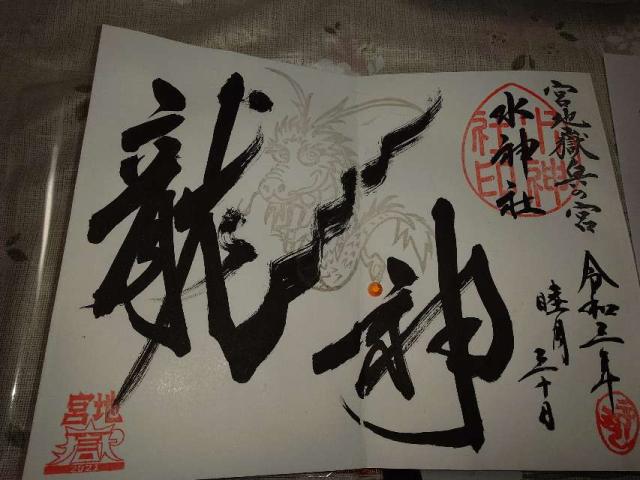 宮地嶽奥の宮
水神社
水神
社印
令和三年
睦月三十日
龍神
宮地
嶽
2021